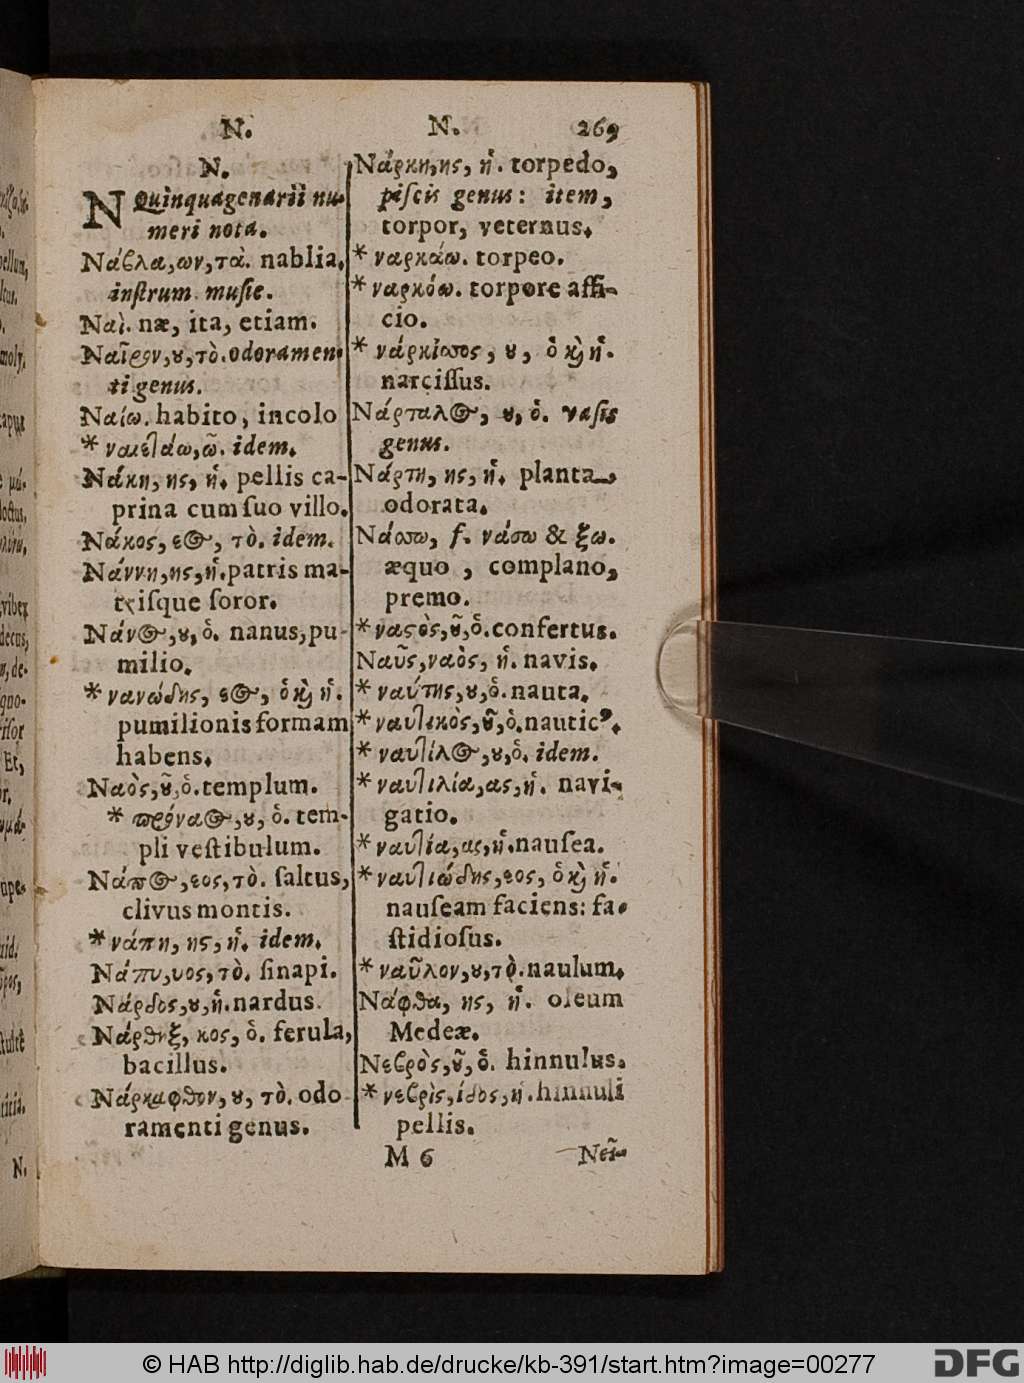 N.
N.
N Quinquagenarii nu-
meri nota.
Νάβλα, ων, τὰ. nablia,
instrum. musie.
Ναὶ. næ, ita, etiam.
Ναῖρον, ȣ, τὸ. odoramen-
ti genus.
Ναίω. habito, incolo
* ναιετάω, ῶ. idem.
Νάκη, ης, ἡ. pellis ca-
prina cum ſuo villo.
Νάκος, εος, τὸ. idem.
Νάννη, ης, ἡ. patris ma-
triſque ſoror.
Νάνος, ȣ, ὁ. nanus, pu-
milio.
* νανώδης, εος, ὁ κὶ ἡ.
pumilionis formam
habens.
Ναὸς, ȣ͂, ὁ. templum.
* πρόναος, ȣ, ὁ. tem-
pli veſtibulum.
Νάπος, εος, τὸ. ſaltus,
clivus montis.
* νάπη, ης, ἡ. idem.
Νάπυ, υος, τὸ. ſinapi.
Νάρδος, ȣ, ἡ. nardus.
Νάρθηξ, κος, ὁ. ferula,
bacillus.
Νάρκαφθον, ȣ, τὸ. odo
ramenti genus.
N. 269
Νάρκη, ης, ἡ. torpedo,
piſcis genus: item,
torpor, veternus.
* ναρκάω. torpeo.
* ναρκόω. torpore affi-
cio.
* νάρκισσος, ȣ, ὁ κὶ ἡ.
narciſſus.
Νάρταλος, ȣ, ὁ. vaſis
genus.
Νάρτη, ης, ἡ. planta
odorata.
Νάσσω, f. νάσω & ξω.
æquo, complano,
premo.
* ναστὸς, ȣ͂, ὁ. confertus.
Ναῦς, ναὸς, ἡ. navis.
* ναύτης, ȣ, ὁ. nauta.
* ναυτικὸς, ȣ͂, ὁ. nauticꝰ.
* ναυτίλος, ȣ, ὁ. idem.
* ναυτιλία, ας, ἡ. navi-
gatio.
* ναυτία, ας, ἡ. nauſea.
* ναυτιώδης, εος, ὁ κὶ ἡ.
nauſeam faciens: fa-
ſtidioſus.
* ναῦλον, ȣ, τὸ. naulum.
Νάφθα, ης, ἡ. oleum
Medeæ.
Νεβρὸς, ȣ͂, ὁ. hinnulus.
* νεβρὶς, ίδος, ἡ. hinnuli
pellis.
M 6 Νεῖ-
© HAB http://diglib.hab.de/drucke/kb-391/start.htm?image=00277
DFG